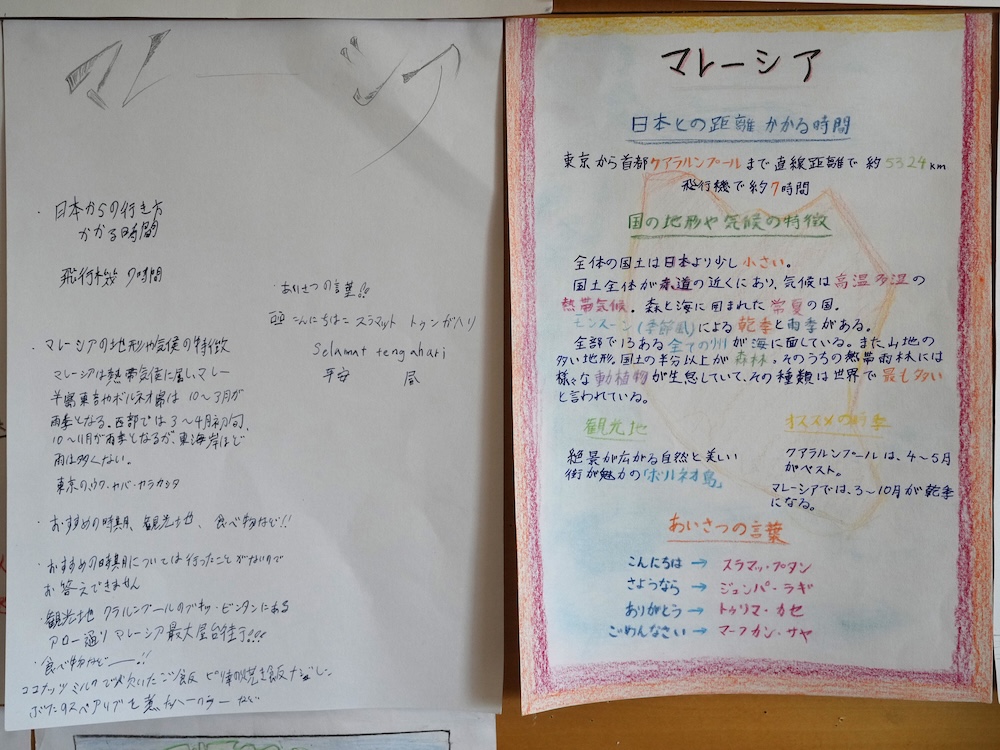 マレーシア
・日本からの行き方
かかる時間
飛行機 7時間
・あいさつの言葉!!
こんにちは スラマット トゥンガハリ
Selamat tengahari
平安 昼
・マレーシアの地形や気候の特徴
マレーシアは熱帯気候に属しマレー
半島東岸やボルネオ島は10〜3月が
雨季となる。西部では3〜4月初旬、
10〜11月が雨季となるが、東海岸ほど
雨は多くない。
東京の
・おすすめの時期、観光地、食べ物など!!
・おすすめの時期については行ったことがないので
お答えできません
・観光地 クラルンプールのブキッ・ビンタンにある
アロー通り マレーシア最大屋台街了!!!
・食べ物など―!!
ココナッツミルクで炊いたご飯 ピリ辛の焼き飯ナシゴレン
ぶたのスペアリブを煮た など
マレーシア
日本との距離 かかる時間
東京から首都クアラルンプールまで直線距離で約5324km
飛行機で約7時間
国の地形や気候の特徴
全体の国土は日本より少し小さい。
国土全体が赤道の近くにあり、気候は高温多湿の
熱帯気候。森と海に囲まれた常夏の国。
モンスーン(季節風)による乾季と雨季がある。
全部で13ある全ての州が海に面している。また山地の
多い地形。国土の半分以上が森林。そのうちの熱帯雨林には
様々な動植物が生息していて、その種類は世界で最も多い
と言われている。
観光地
絶景が広がる自然と美しい
街が魅力の「ボルネオ島」
オススメの時季
クアラルンプールは、4〜5月
がベスト。
マレーシアでは、3〜10月が乾季
になる。
あいさつの言葉
こんにちは → スラマッ・プタン
さようなら → ジュンパ・ラギ
ありがとう → トゥリマ・カセ
ごめんなさい → マーフカン・サヤ